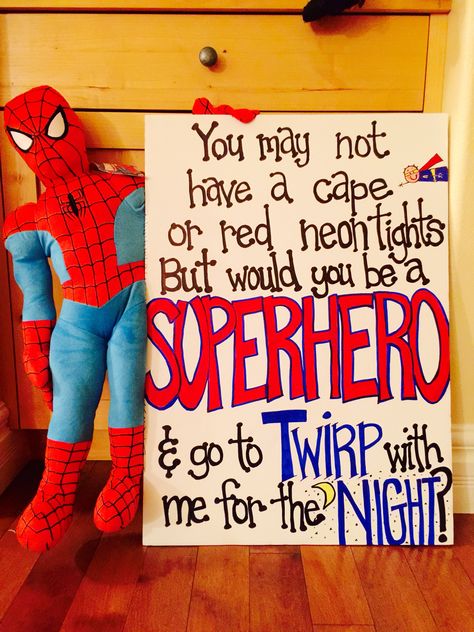 You may not
have a cape
or red neon tights
But would you be a
SUPERHERO
& go to TWIRP with
me for the NIGHT?